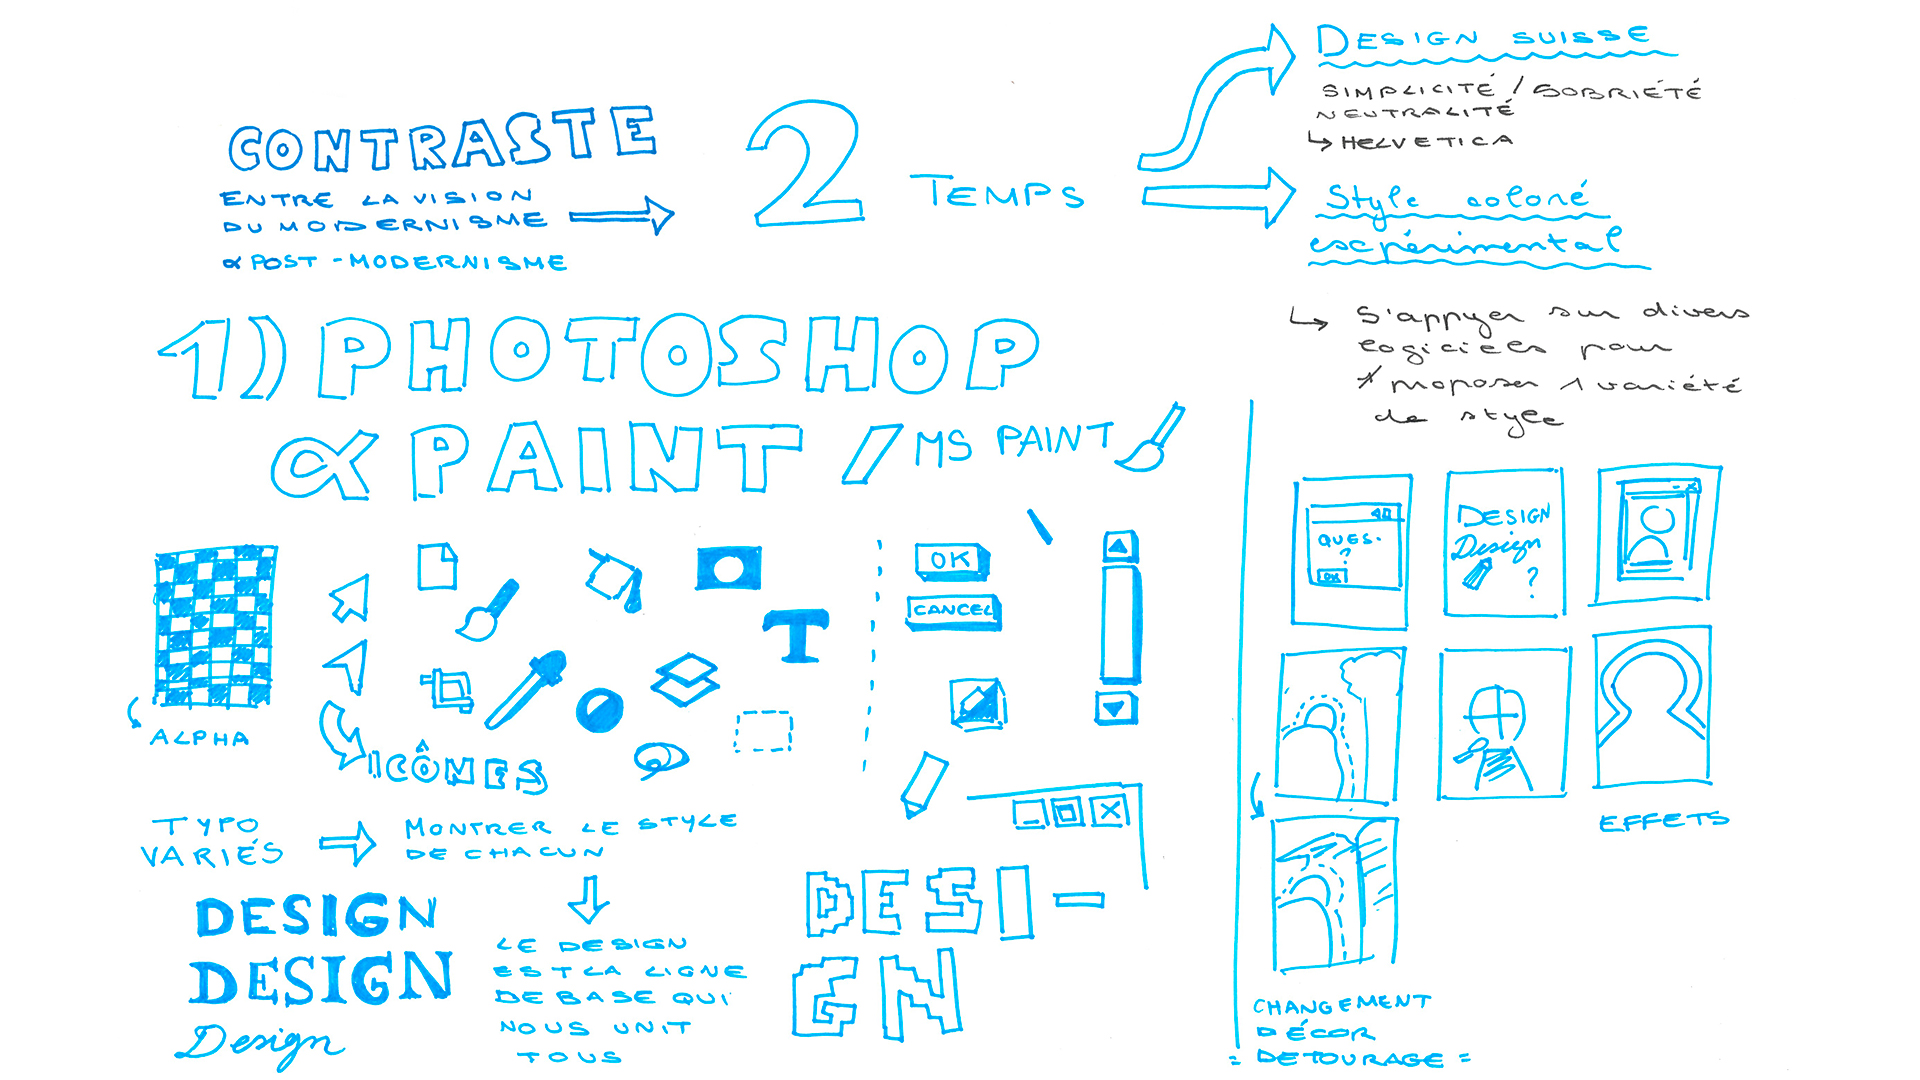 CONTRASTE
ENTRE LA VISION
DU MODERNISME
& POST-MODERNISME
2 TEMPS
DESIGN SUISSE
SIMPLICITÉ / SOBRIÉTÉ
NEUTRALITÉ
↳ HELVETICA
Style coloré
expérimental
↳ S'appyer sur divers
logiciels pour
proposer 1 variété
de style
1) PHOTOSHOP
& PAINT / MS PAINT
ALPHA
ICÔNES
T
OK
CANCEL
TYPO
VARIÉS
MONTRER LE STYLE
DE CHACUN
DESIGN
DESIGN
Design
LE DESIGN
EST LA LIGNE
DE BASE QUI
NOUS UNIT
TOUS
DESI-
GN
QUES.
?
OK
DESIGN
Design
?
EFFETS
CHANGEMENT
DÉCOR
= DETOURAGE =